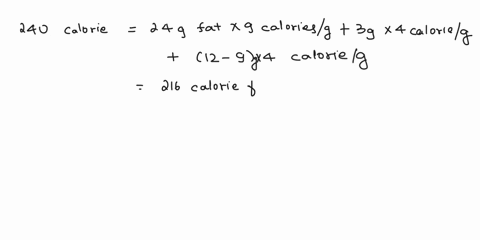 240 calorie = 24 g fat × 9 calories/g + 3g × 4 calorie/g
+ (12-9)g×4 calorie/g
= 216 calorie f